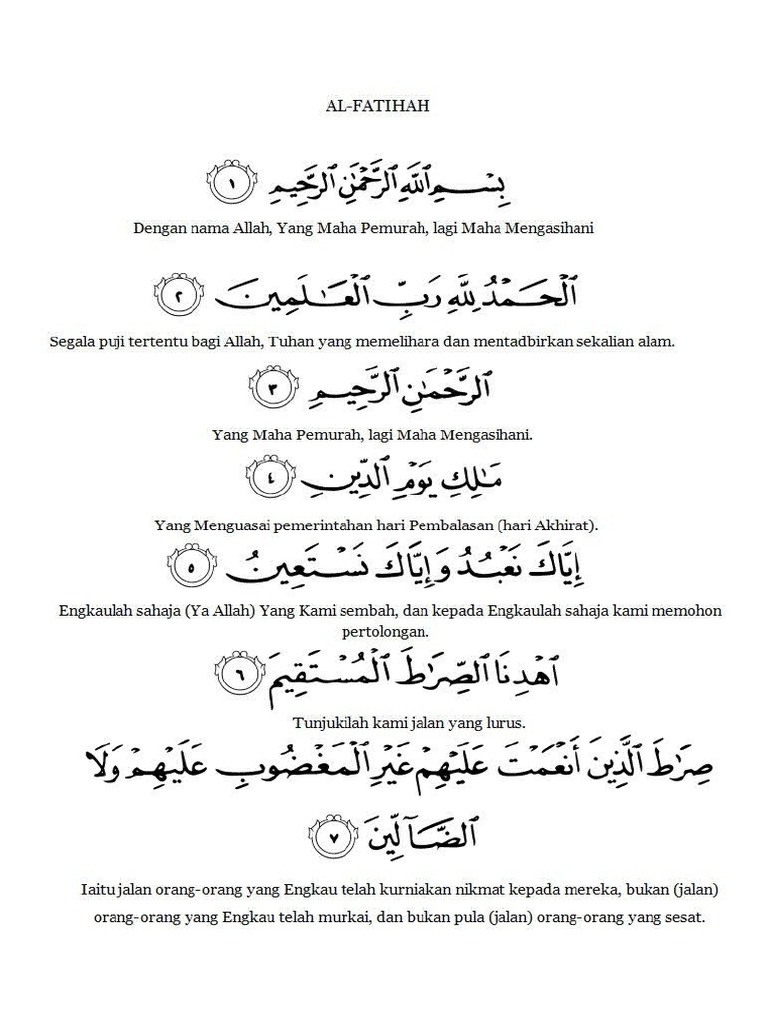 AL-FATIHAH
بِسْمِ ٱللَّهِ ٱلرَّحْمَٰنِ ٱلرَّحِيمِ ١
Dengan nama Allah, Yang Maha Pemurah, lagi Maha Mengasihani
ٱلْحَمْدُ لِلَّهِ رَبِّ ٱلْعَٰلَمِينَ ٢
Segala puji tertentu bagi Allah, Tuhan yang memelihara dan mentadbirkan sekalian alam.
ٱلرَّحْمَٰنِ ٱلرَّحِيمِ ٣
Yang Maha Pemurah, lagi Maha Mengasihani.
مَٰلِكِ يَوْمِ ٱلدِّينِ ٤
Yang Menguasai pemerintahan hari Pembalasan (hari Akhirat).
إِيَّاكَ نَعْبُدُ وَإِيَّاكَ نَسْتَعِينُ ٥
Engkaulah sahaja (Ya Allah) Yang Kami sembah, dan kepada Engkaulah sahaja kami memohon
pertolongan.
ٱهْدِنَا ٱلصِّرَٰطَ ٱلْمُسْتَقِيمَ ٦
Tunjukilah kami jalan yang lurus.
صِرَٰطَ ٱلَّذِينَ أَنْعَمْتَ عَلَيْهِمْ غَيْرِ ٱلْمَغْضُوبِ عَلَيْهِمْ وَلَا
ٱلضَّآلِّينَ ٧
Iaitu jalan orang-orang yang Engkau telah kurniakan nikmat kepada mereka, bukan (jalan)
orang-orang yang Engkau telah murkai, dan bukan pula (jalan) orang-orang yang sesat.